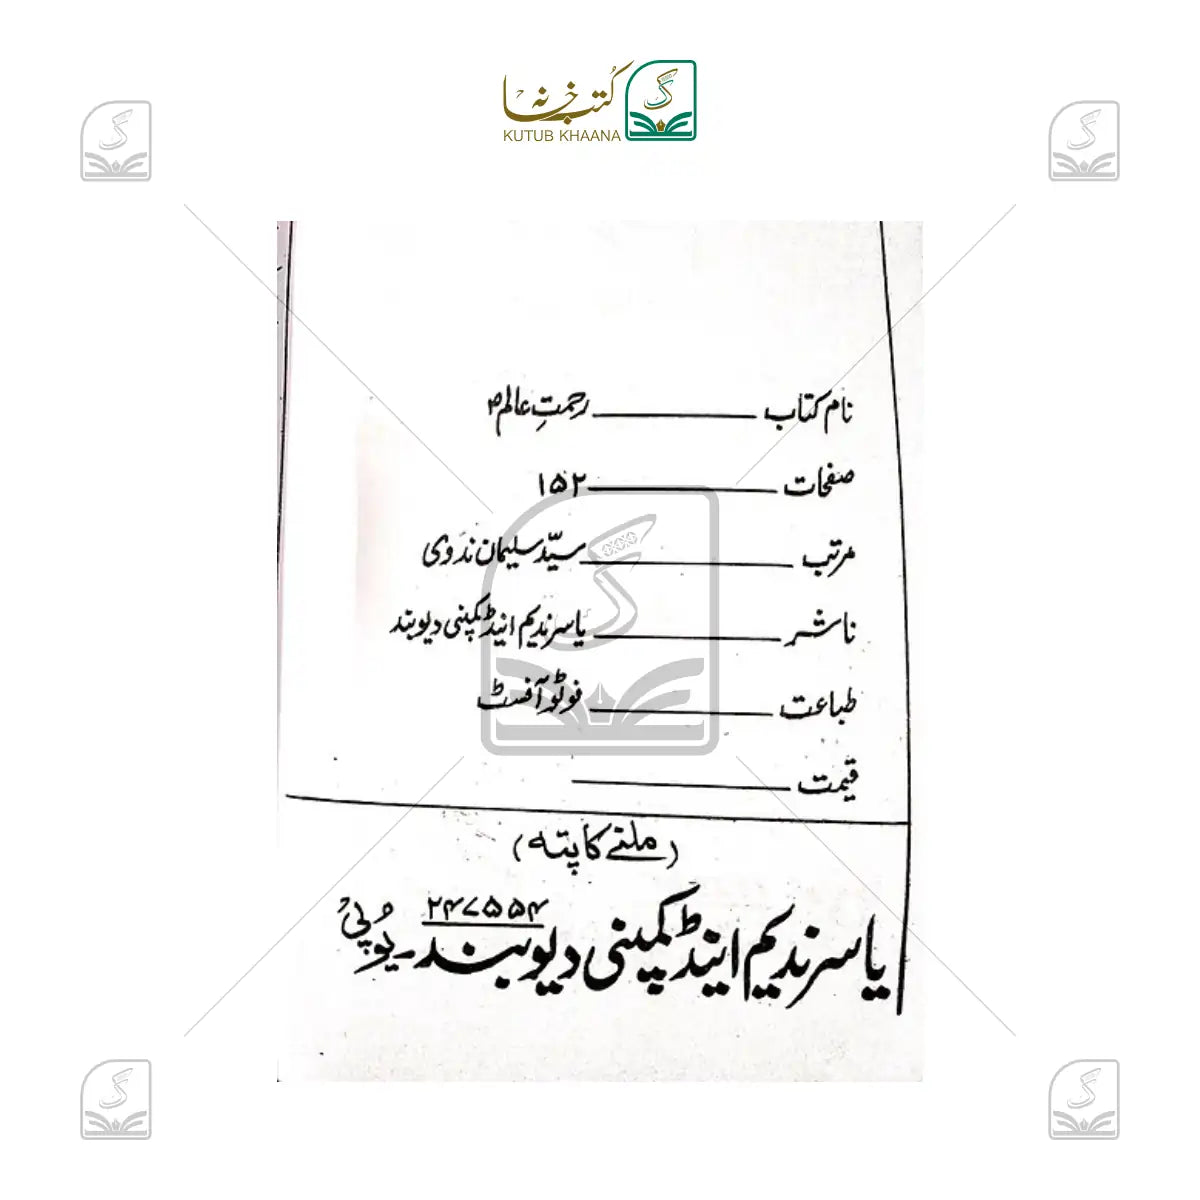 کتب خانہ
KUTUB KHAANA
نام کتاب ــــــ رحمتِ عالم ؐ
صفحات ــــــ ۱۵۲
مرتب ــــــ سیّد سلیمان ندوی
ناشر ــــــ یاسر ندیم اینڈ کمپنی دیوبند
طباعت ــــــ فوٹو آفسٹ
قیمت ــــــ
(ملنے کا پتہ)
یاسر ندیم اینڈ کمپنی دیوبند ۲۴۷۵۵۴ ۔ یُوپی